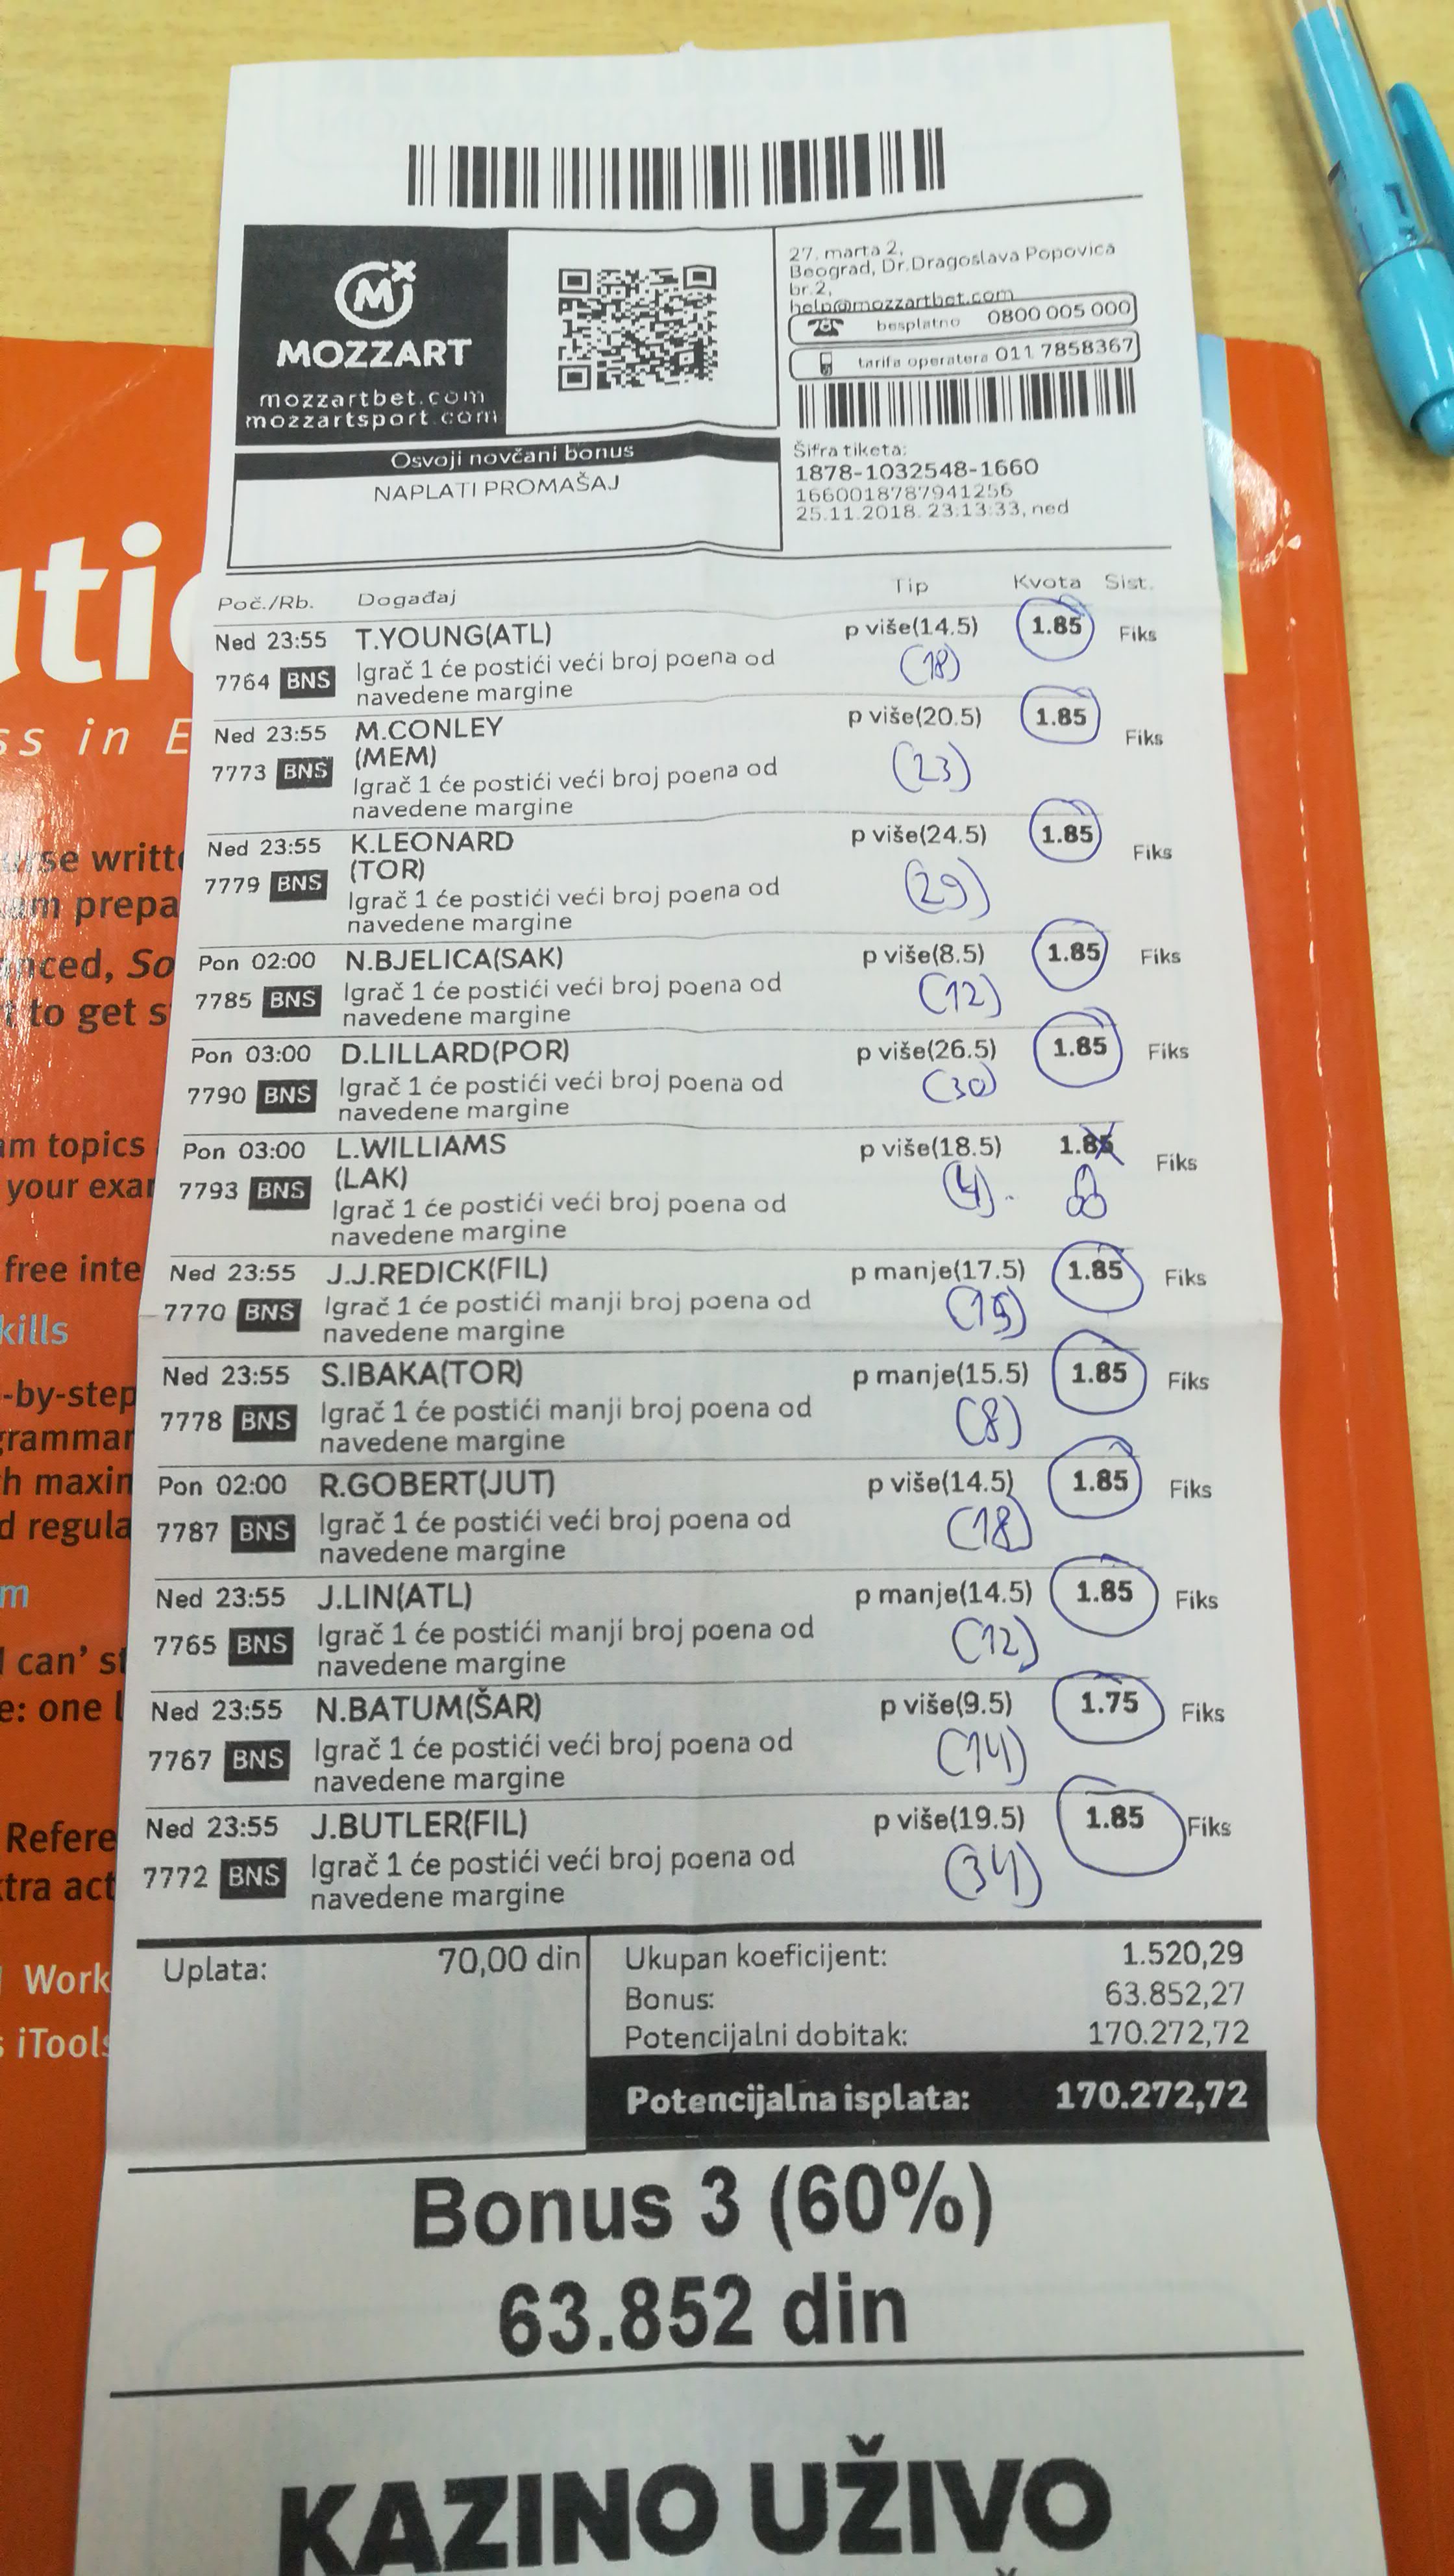 MOZZART
mozzartbet.com
mozzartsport.com
27. marta 2,
Beograd, Dr.Dragoslava Popovića
br.2,
help@mozzartbet.com
besplatno 0800 005 000
tarifa operatera 011 7858367
Osvoji novčani bonus
NAPLATI PROMAŠAJ
Šifra tiketa:
1878-1032548-1660
1660018787941256
25.11.2018. 23:13:33, ned
Poč./Rb. Događaj Tip Kvota Sist.
Ned 23:55 T.YOUNG(ATL) p više(14.5) 1.85 Fiks
7764 BNS Igrač 1 će postići veći broj poena od (18)
navedene margine
Ned 23:55 M.CONLEY p više(20.5) 1.85 Fiks
(MEM)
7773 BNS Igrač 1 će postići veći broj poena od (23)
navedene margine
Ned 23:55 K.LEONARD p više(24.5) 1.85 Fiks
(TOR)
7779 BNS Igrač 1 će postići veći broj poena od (29)
navedene margine
Pon 02:00 N.BJELICA(SAK) p više(8.5) 1.85 Fiks
7785 BNS Igrač 1 će postići veći broj poena od (12)
navedene margine
Pon 03:00 D.LILLARD(POR) p više(26.5) 1.85 Fiks
7790 BNS Igrač 1 će postići veći broj poena od (30)
navedene margine
Pon 03:00 L.WILLIAMS p više(18.5) 1.85 Fiks
(LAK)
7793 BNS Igrač 1 će postići veći broj poena od (4)
navedene margine
Ned 23:55 J.J.REDICK(FIL) p manje(17.5) 1.85 Fiks
7770 BNS Igrač 1 će postići manji broj poena od
navedene margine
Ned 23:55 S.IBAKA(TOR) p manje(15.5) 1.85 Fiks
7778 BNS Igrač 1 će postići manji broj poena od (8)
navedene margine
Pon 02:00 R.GOBERT(JUT) p više(14.5) 1.85 Fiks
7787 BNS Igrač 1 će postići veći broj poena od (18)
navedene margine
Ned 23:55 J.LIN(ATL) p manje(14.5) 1.85 Fiks
7765 BNS Igrač 1 će postići manji broj poena od (12)
navedene margine
Ned 23:55 N.BATUM(ŠAR) p više(9.5) 1.75 Fiks
7767 BNS Igrač 1 će postići veći broj poena od (14)
navedene margine
Ned 23:55 J.BUTLER(FIL) p više(19.5) 1.85 Fiks
7772 BNS Igrač 1 će postići veći broj poena od (34)
navedene margine
Uplata: 70,00 din
Ukupan koeficijent: 1.520,29
Bonus: 63.852,27
Potencijalni dobitak: 170.272,72
Potencijalna isplata: 170.272,72
Bonus 3 (60%)
63.852 din
KAZINO UŽIVO
ss in E
to get s
am topics
your exa
free inte
kills
-by-step
grammar
h maxin
d regula
can' st
e: one
Refere
tra act
Work
iTools